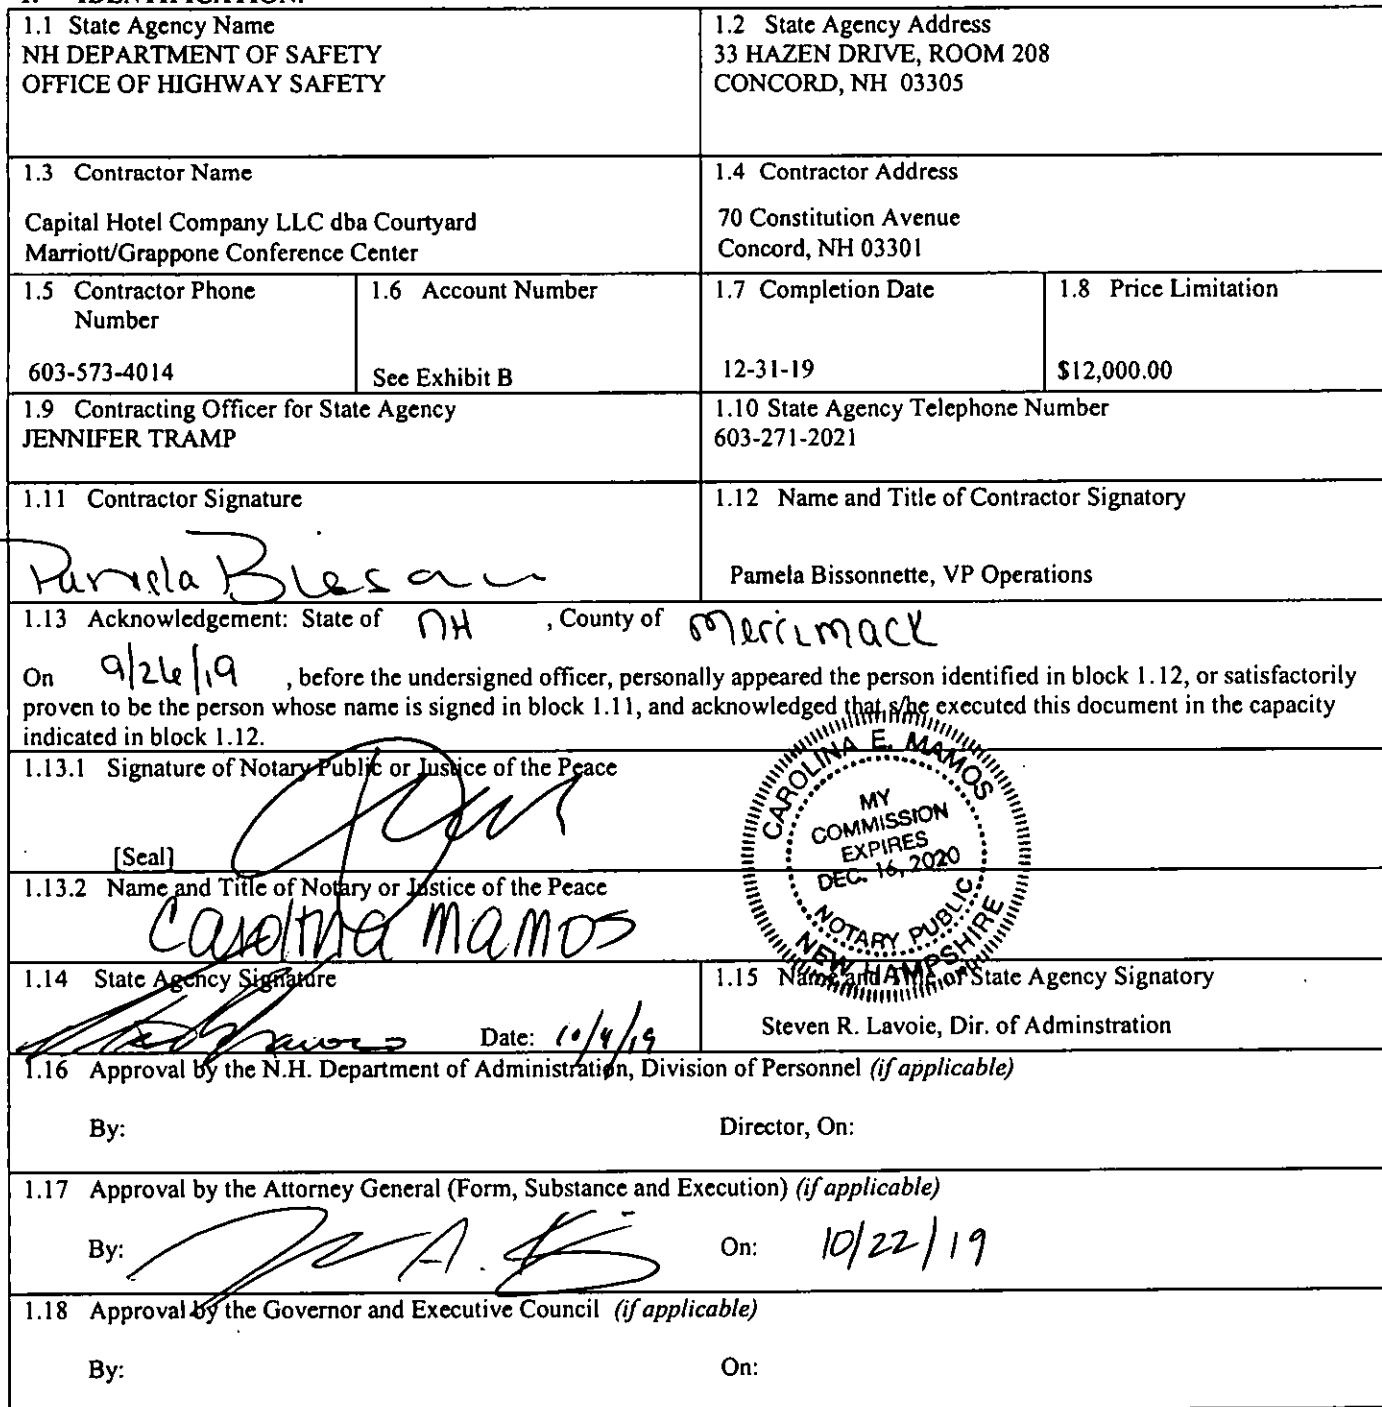 1.1 State Agency Name
NH DEPARTMENT OF SAFETY
OFFICE OF HIGHWAY SAFETY
1.2 State Agency Address
33 HAZEN DRIVE, ROOM 208
CONCORD, NH 03305
1.3 Contractor Name
Capital Hotel Company LLC dba Courtyard
Marriott/Grappone Conference Center
1.4 Contractor Address
70 Constitution Avenue
Concord, NH 03301
1.5 Contractor Phone
Number
603-573-4014
1.6 Account Number
See Exhibit B
1.7 Completion Date
12-31-19
1.8 Price Limitation
$12,000.00
1.9 Contracting Officer for State Agency
JENNIFER TRAMP
1.10 State Agency Telephone Number
603-271-2021
1.11 Contractor Signature
Pamela
1.12 Name and Title of Contractor Signatory
Pamela Bissonnette, VP Operations
1.13 Acknowledgement: State of NH , County of Merrimack
On 9/26/19 , before the undersigned officer, personally appeared the person identified in block 1.12, or satisfactorily
proven to be the person whose name is signed in block 1.11, and acknowledged that s/he executed this document in the capacity
indicated in block 1.12.
1.13.1 Signature of Notary Public or Justice of the Peace
[Seal]
CAROLINA E. MAMOS
MY
COMMISSION
EXPIRES
DEC. 16, 2020
NOTARY PUBLIC
NEW HAMPSHIRE
1.13.2 Name and Title of Notary or Justice of the Peace
Carolina Mamos
1.14 State Agency Signature
Date: 10/4/19
1.15 Name and Title of State Agency Signatory
Steven R. Lavoie, Dir. of Adminstration
1.16 Approval by the N.H. Department of Administration, Division of Personnel (if applicable)
By:
Director, On:
1.17 Approval by the Attorney General (Form, Substance and Execution) (if applicable)
By:
On: 10/22/19
1.18 Approval by the Governor and Executive Council (if applicable)
By:
On: